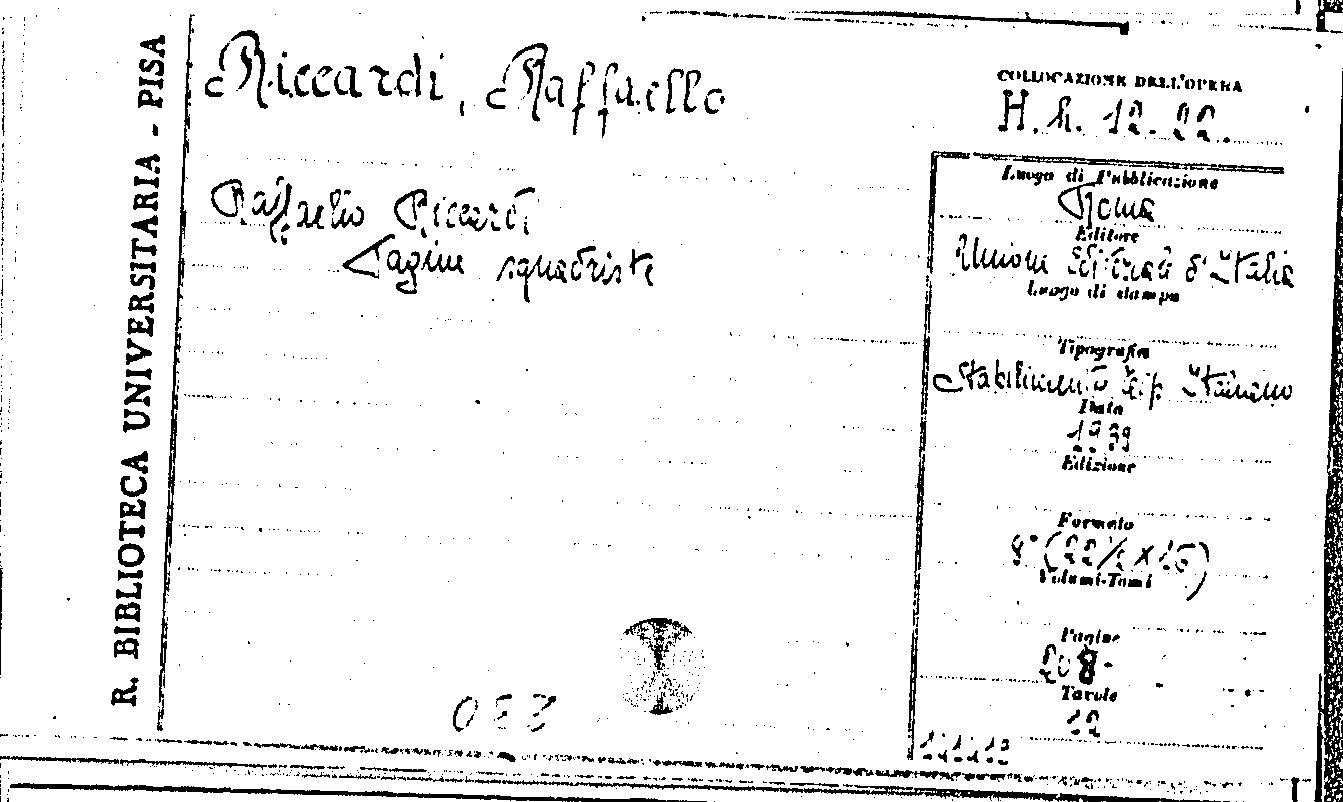 R. BIBLIOTECA UNIVERSITARIA - PISA
Riccardi, Raffaello
Raffaello Riccardi
Pagine squadriste
COLLOCAZIONE DELL'OPERA
H. h. 12. 22.
Luogo di Pubblicazione
Roma
Editore
Unione Editoriale d'Italia
Luogo di stampa
Tipografia
Stabilimento Tip. Italiano
Data
1939
Edizione
Formato
8° (22½ x 16)
Volumi-Tomi
Pagine
208
Tavole
12